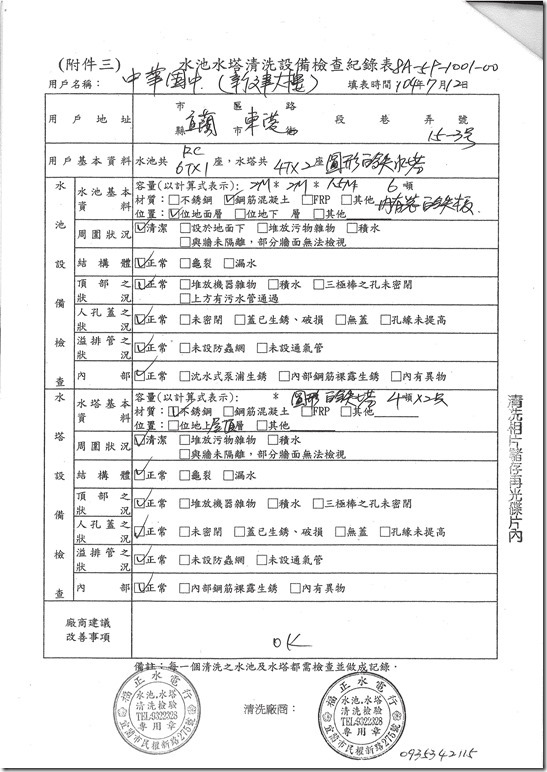 (附件三) 水池水塔清洗設備檢查紀錄表 8A-5P-1001-00
用戶名稱： 中華國中 (新建大樓) 填表時間 104年7月12日
用戶地址 宜蘭 市縣 東港 區市 路街 段 巷 弄 號 15-3號
RC
用戶基本資料 水池共 6T×1 座，水塔共 4T×2 座 圓形白鐵水塔
水池設備檢查
水池基本資料 容量(以計算式表示): 2M * 2M * 1.5M 6 噸
材質：□不銹鋼 ☑鋼筋混凝土 □FRP □其他 內有装白鐵板
位置：☑位地面層 □位地下 層 □其他
周圍狀況 ☑清潔 □設於地面下 □堆放污物雜物 □積水
□與牆未隔離，部分牆面無法檢視
結構體 ☑正常 □龜裂 □漏水
頂部之狀況 ☑正常 □堆放機器雜物 □積水 □三極棒之孔未密閉
□上方有污水管通過
人孔蓋之狀況 ☑正常 □未密閉 □蓋已生銹、破損 □無蓋 □孔緣未提高
溢排管之狀況 ☑正常 □未設防蟲網 □未設通氣管
內部 ☑正常 □沈水式泵浦生銹 □內部鋼筋裸露生銹 □內有異物
水塔設備檢查
水塔基本資料 容量(以計算式表示): * 圓形白鐵水塔 4噸×2支
材質：☑不銹鋼 □鋼筋混凝土 □FRP □其他
位置：□位地上屋頂層 □其他
周圍狀況 ☑清潔 □堆放污物雜物 □積水
□與牆未隔離，部分牆面無法檢視
結構體 ☑正常 □龜裂 □漏水
頂部之狀況 ☑正常 □堆放機器雜物 □積水 □三極棒之孔未密閉
人孔蓋之狀況 ☑正常 □未密閉 □蓋已生銹、破損 □無蓋 □孔緣未提高
溢排管之狀況 ☑正常 □未設防蟲網 □未設通氣管
內部 ☑正常 □內部鋼筋裸露生銹 □內有異物
廠商建議改善事項 OK
清洗相片儲存再光碟片內
備註：每一個清洗之水池及水塔都需檢查並做成記錄．
清洗廠商：
福正水電行
水池.水塔
清洗檢驗
TEL:9322328
專用章
宜蘭市民權新路275號
福正水電行
水池.水塔
清洗檢驗
TEL:9322328
專用章
宜蘭市民權新路275號
0935342115